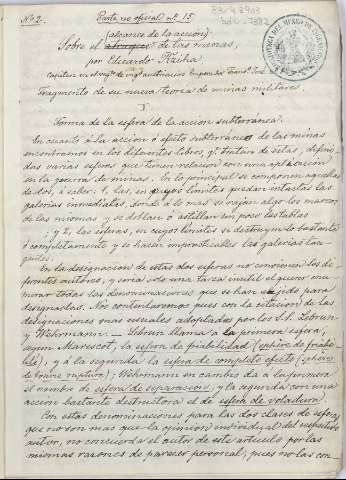 Nº 2. Parte no oficial nº 15
(alcance de la acción)
Sobre el de las minas,
por Eduardo
Fragmento de su nueva teoria de minas militares.
I.
Forma de la esfera de la accion subterranea.
En cuanto á la accion ó efecto subterraneo de las minas
encontramos en los diferentes libros, qe tratan de estas, defini-
das varias esferas que tienen relacion con una aplicacion
en la guerra de minas. En lo principal se componen aquellas
de dos, á saber: 1, las, en cuyos limites quedan intactas las
galerias inmediatas, donde á lo mas se rajan algo los marcos
de las mismas y se doblan ó astillan un poco las tablas
; y 2, las esferas, en cuyos limites se destruyen bastante
ó completamente y se hacen impracticables las galerias
En la designacion de estas dos esferas no convienen los di-
ferentes autores, y seria solo una tarea inutil el querer enu-
merar todas las denominaciones que se han para
designarlas. Nos contentaremos pues con la citacion de las
designaciones mas usuales adoptadas por los S.S. Lebrun
y Wehrmann. — Lebrun llama á la primera esfera,
segun Marescot, la esfera de friabilidad (sphère de friabi-
lité), y á la segunda la esfera de completo efecto (sphère
de bonne rupture); Wehrmann en cambio da á la primera
el nombre de esfera de separacion, y la segunda con una
accion bastante destructora el de esfera de voladura.
Con estas denominaciones para las dos clases de esferas,
que no son mas que la opinion individual del respectivo
autor, no concuerda el autor de este articulo por las
mismas razones de parecer personal, pues no las con-